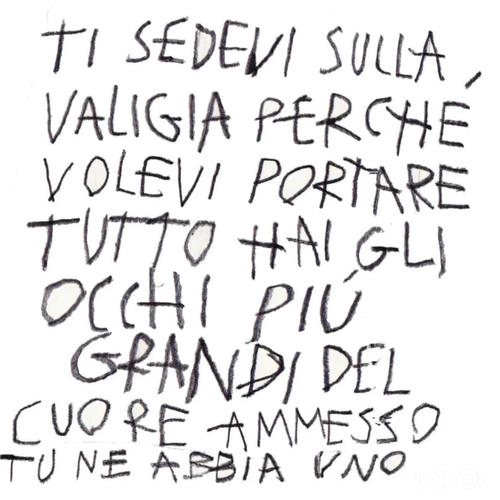 TI SEDEVI SULLA
VALIGIA PERCHÉ
VOLEVI PORTARE
TUTTO HAI GLI
OCCHI PIÚ
GRANDI DEL
CUORE AMMESSO
TU NE ABBIA UNO